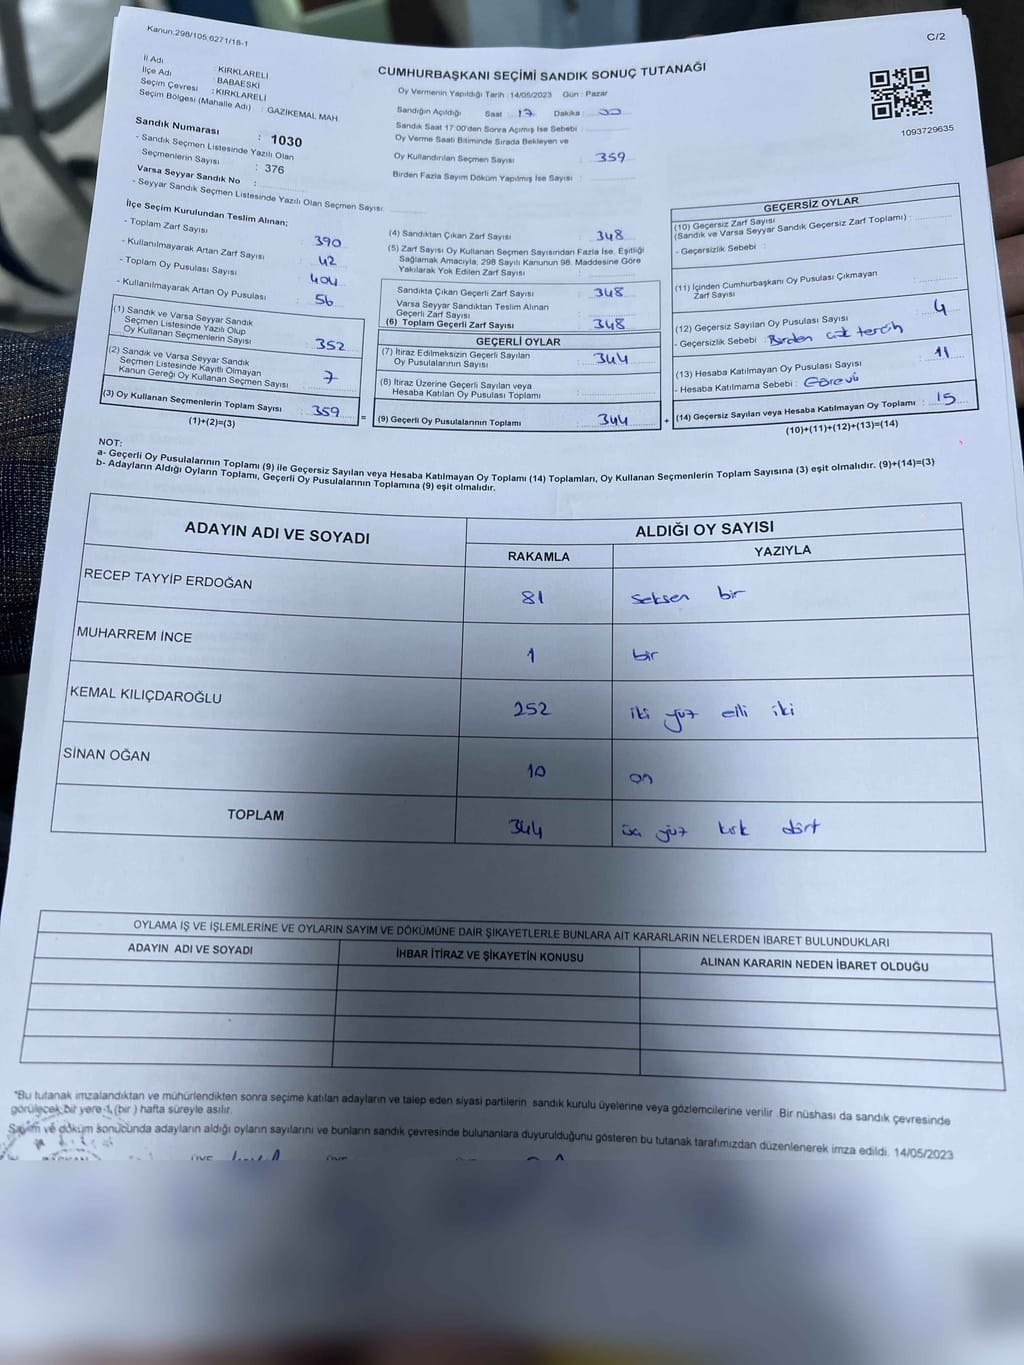 Kanun:298/105;6271/18-1
C/2
İl Adı : KIRKLARELİ
İlçe Adı : BABAESKİ
Seçim Çevresi : KIRKLARELİ
Seçim Bölgesi (Mahalle Adı) : GAZİKEMAL MAH.
CUMHURBAŞKANI SEÇİMİ SANDIK SONUÇ TUTANAĞI
Oy Vermenin Yapıldığı Tarih :14/05/2023 Gün : Pazar
Sandığın Açıldığı Saat : 17 Dakika : 00
Sandık Saat 17:00'den Sonra Açılmış İse Sebebi :
Oy Verme Saati Bitiminde Sırada Bekleyen ve
Oy Kullandırılan Seçmen Sayısı : 359
Birden Fazla Sayım Döküm Yapılmış İse Sayısı :
1093729635
Sandık Numarası : 1030
- Sandık Seçmen Listesinde Yazılı Olan
Seçmenlerin Sayısı : 376
Varsa Seyyar Sandık No :
- Seyyar Sandık Seçmen Listesinde Yazılı Olan Seçmen Sayısı:
İlçe Seçim Kurulundan Teslim Alınan;
- Toplam Zarf Sayısı : 390
- Kullanılmayarak Artan Zarf Sayısı : 42
- Toplam Oy Pusulası Sayısı : 404
- Kullanılmayarak Artan Oy Pusulası : 56
(1) Sandık ve Varsa Seyyar Sandık
Seçmen Listesinde Yazılı Olup
Oy Kullanan Seçmenlerin Sayısı : 352
(2) Sandık ve Varsa Seyyar Sandık
Seçmen Listesinde Kayıtlı Olmayan
Kanun Gereği Oy Kullanan Seçmen Sayısı : 7
(3) Oy Kullanan Seçmenlerin Toplam Sayısı : 359
(1)+(2)=(3)
(4) Sandıktan Çıkan Zarf Sayısı : 348
(5) Zarf Sayısı Oy Kullanan Seçmen Sayısından Fazla İse, Eşitliği
Sağlamak Amacıyla; 298 Sayılı Kanunun 98. Maddesine Göre
Yakılarak Yok Edilen Zarf Sayısı :
Sandıkta Çıkan Geçerli Zarf Sayısı : 348
Varsa Seyyar Sandıktan Teslim Alınan
Geçerli Zarf Sayısı :
(6) Toplam Geçerli Zarf Sayısı : 348
GEÇERLİ OYLAR
(7) İtiraz Edilmeksizin Geçerli Sayılan
Oy Pusulalarının Sayısı : 344
(8) İtiraz Üzerine Geçerli Sayılan veya
Hesaba Katılan Oy Pusulası Toplamı :
= (9) Geçerli Oy Pusulalarının Toplamı : 344
GEÇERSİZ OYLAR
(10) Geçersiz Zarf Sayısı
(Sandık ve Varsa Seyyar Sandık Geçersiz Zarf Toplamı) :
- Geçersizlik Sebebi :
(11) İçinden Cumhurbaşkanı Oy Pusulası Çıkmayan
Zarf Sayısı :
(12) Geçersiz Sayılan Oy Pusulası Sayısı : 4
- Geçersizlik Sebebi : Birden çok tercih
(13) Hesaba Katılmayan Oy Pusulası Sayısı : 11
- Hesaba Katılmama Sebebi : Görevli
+ (14) Geçersiz Sayılan veya Hesaba Katılmayan Oy Toplamı : 15
(10)+(11)+(12)+(13)=(14)
NOT:
a- Geçerli Oy Pusulalarının Toplamı (9) ile Geçersiz Sayılan veya Hesaba Katılmayan Oy Toplamı (14) Toplamları, Oy Kullanan Seçmenlerin Toplam Sayısına (3) eşit olmalıdır. (9)+(14)=(3)
b- Adayların Aldığı Oyların Toplamı, Geçerli Oy Pusulalarının Toplamına (9) eşit olmalıdır.
ADAYIN ADI VE SOYADI
ALDIĞI OY SAYISI
RAKAMLA YAZIYLA
RECEP TAYYİP ERDOĞAN 81 seksen bir
MUHARREM İNCE 1 bir
KEMAL KILIÇDAROĞLU 252 iki yüz elli iki
SİNAN OĞAN 10 on
TOPLAM 344 üç yüz kırk dört
OYLAMA İŞ VE İŞLEMLERİNE VE OYLARIN SAYIM VE DÖKÜMÜNE DAİR ŞİKAYETLERLE BUNLARA AİT KARARLARIN NELERDEN İBARET BULUNDUKLARI
ADAYIN ADI VE SOYADI İHBAR İTİRAZ VE ŞİKAYETİN KONUSU ALINAN KARARIN NEDEN İBARET OLDUĞU
*Bu tutanak imzalandıktan ve mühürlendikten sonra seçime katılan adayların ve talep eden siyasi partilerin sandık kurulu üyelerine veya gözlemcilerine verilir. Bir nüshası da sandık çevresinde
görülecek bir yere 1 (bir ) hafta süreyle asılır.
Sayım ve döküm sonucunda adayların aldığı oyların sayılarını ve bunların sandık çevresinde bulunanlara duyurulduğunu gösteren bu tutanak tarafımızdan düzenlenerek imza edildi. 14/05/2023